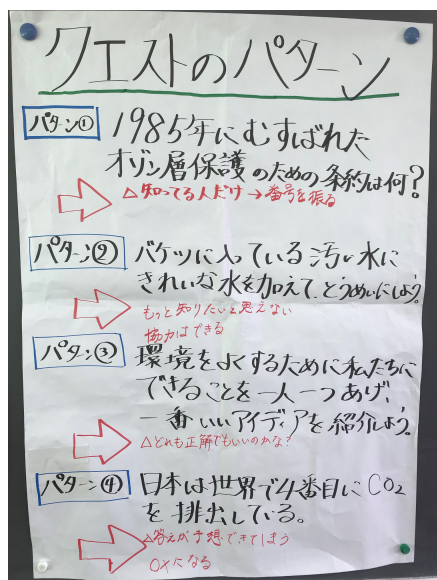 クエストのパターン
パターン①
1985年にむすばれた
オゾン層保護のための条約は何?
△知ってる人だけ→番号を振る
パターン②
バケツに入っている汚い水に
きれいな水を加えて、とうめいにしよう。
もっと知りたいと思えない
協力はできる
パターン③
環境をよくするために私たちに
できることを一人一つあげ、
一番いいアイディアを紹介しよう。
△どれも正解でもいいのかな?
パターン④
日本は世界で4番目にCO2
を排出している。
△答えが予想できてしまう
○×になる